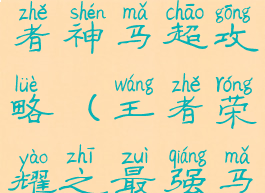 zhě shén mǎ chāo gōng
者神马超攻
lüè wáng zhě róng
略（王者荣
yào zhī zuì qiáng mǎ
耀之最强马